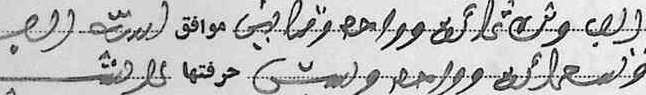 الف وثلاثمائة وواحد وثمانين موافق لسنة الف
وتسعمائة وواحد وستين حرفتها